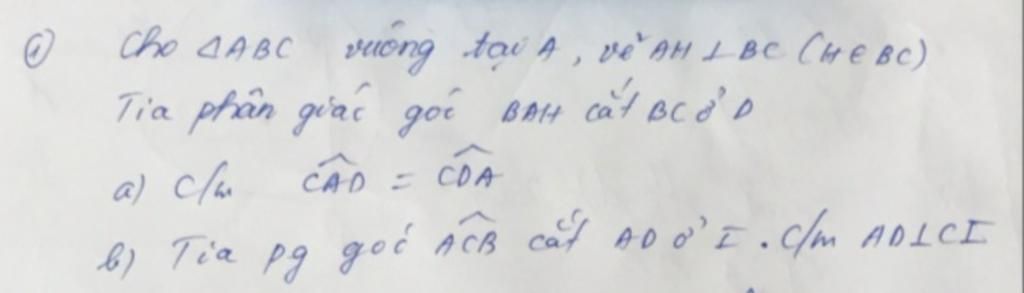 ① Cho △ABC vuông tại A, vẽ AH ⊥ BC (H ∈ BC)
Tia phân giác góc BAH cắt BC ở D
a) C/m \widehat{CAD} = \widehat{CDA}
b) Tia pg góc \widehat{ACB} cắt AD ở I. C/m AD⊥CI